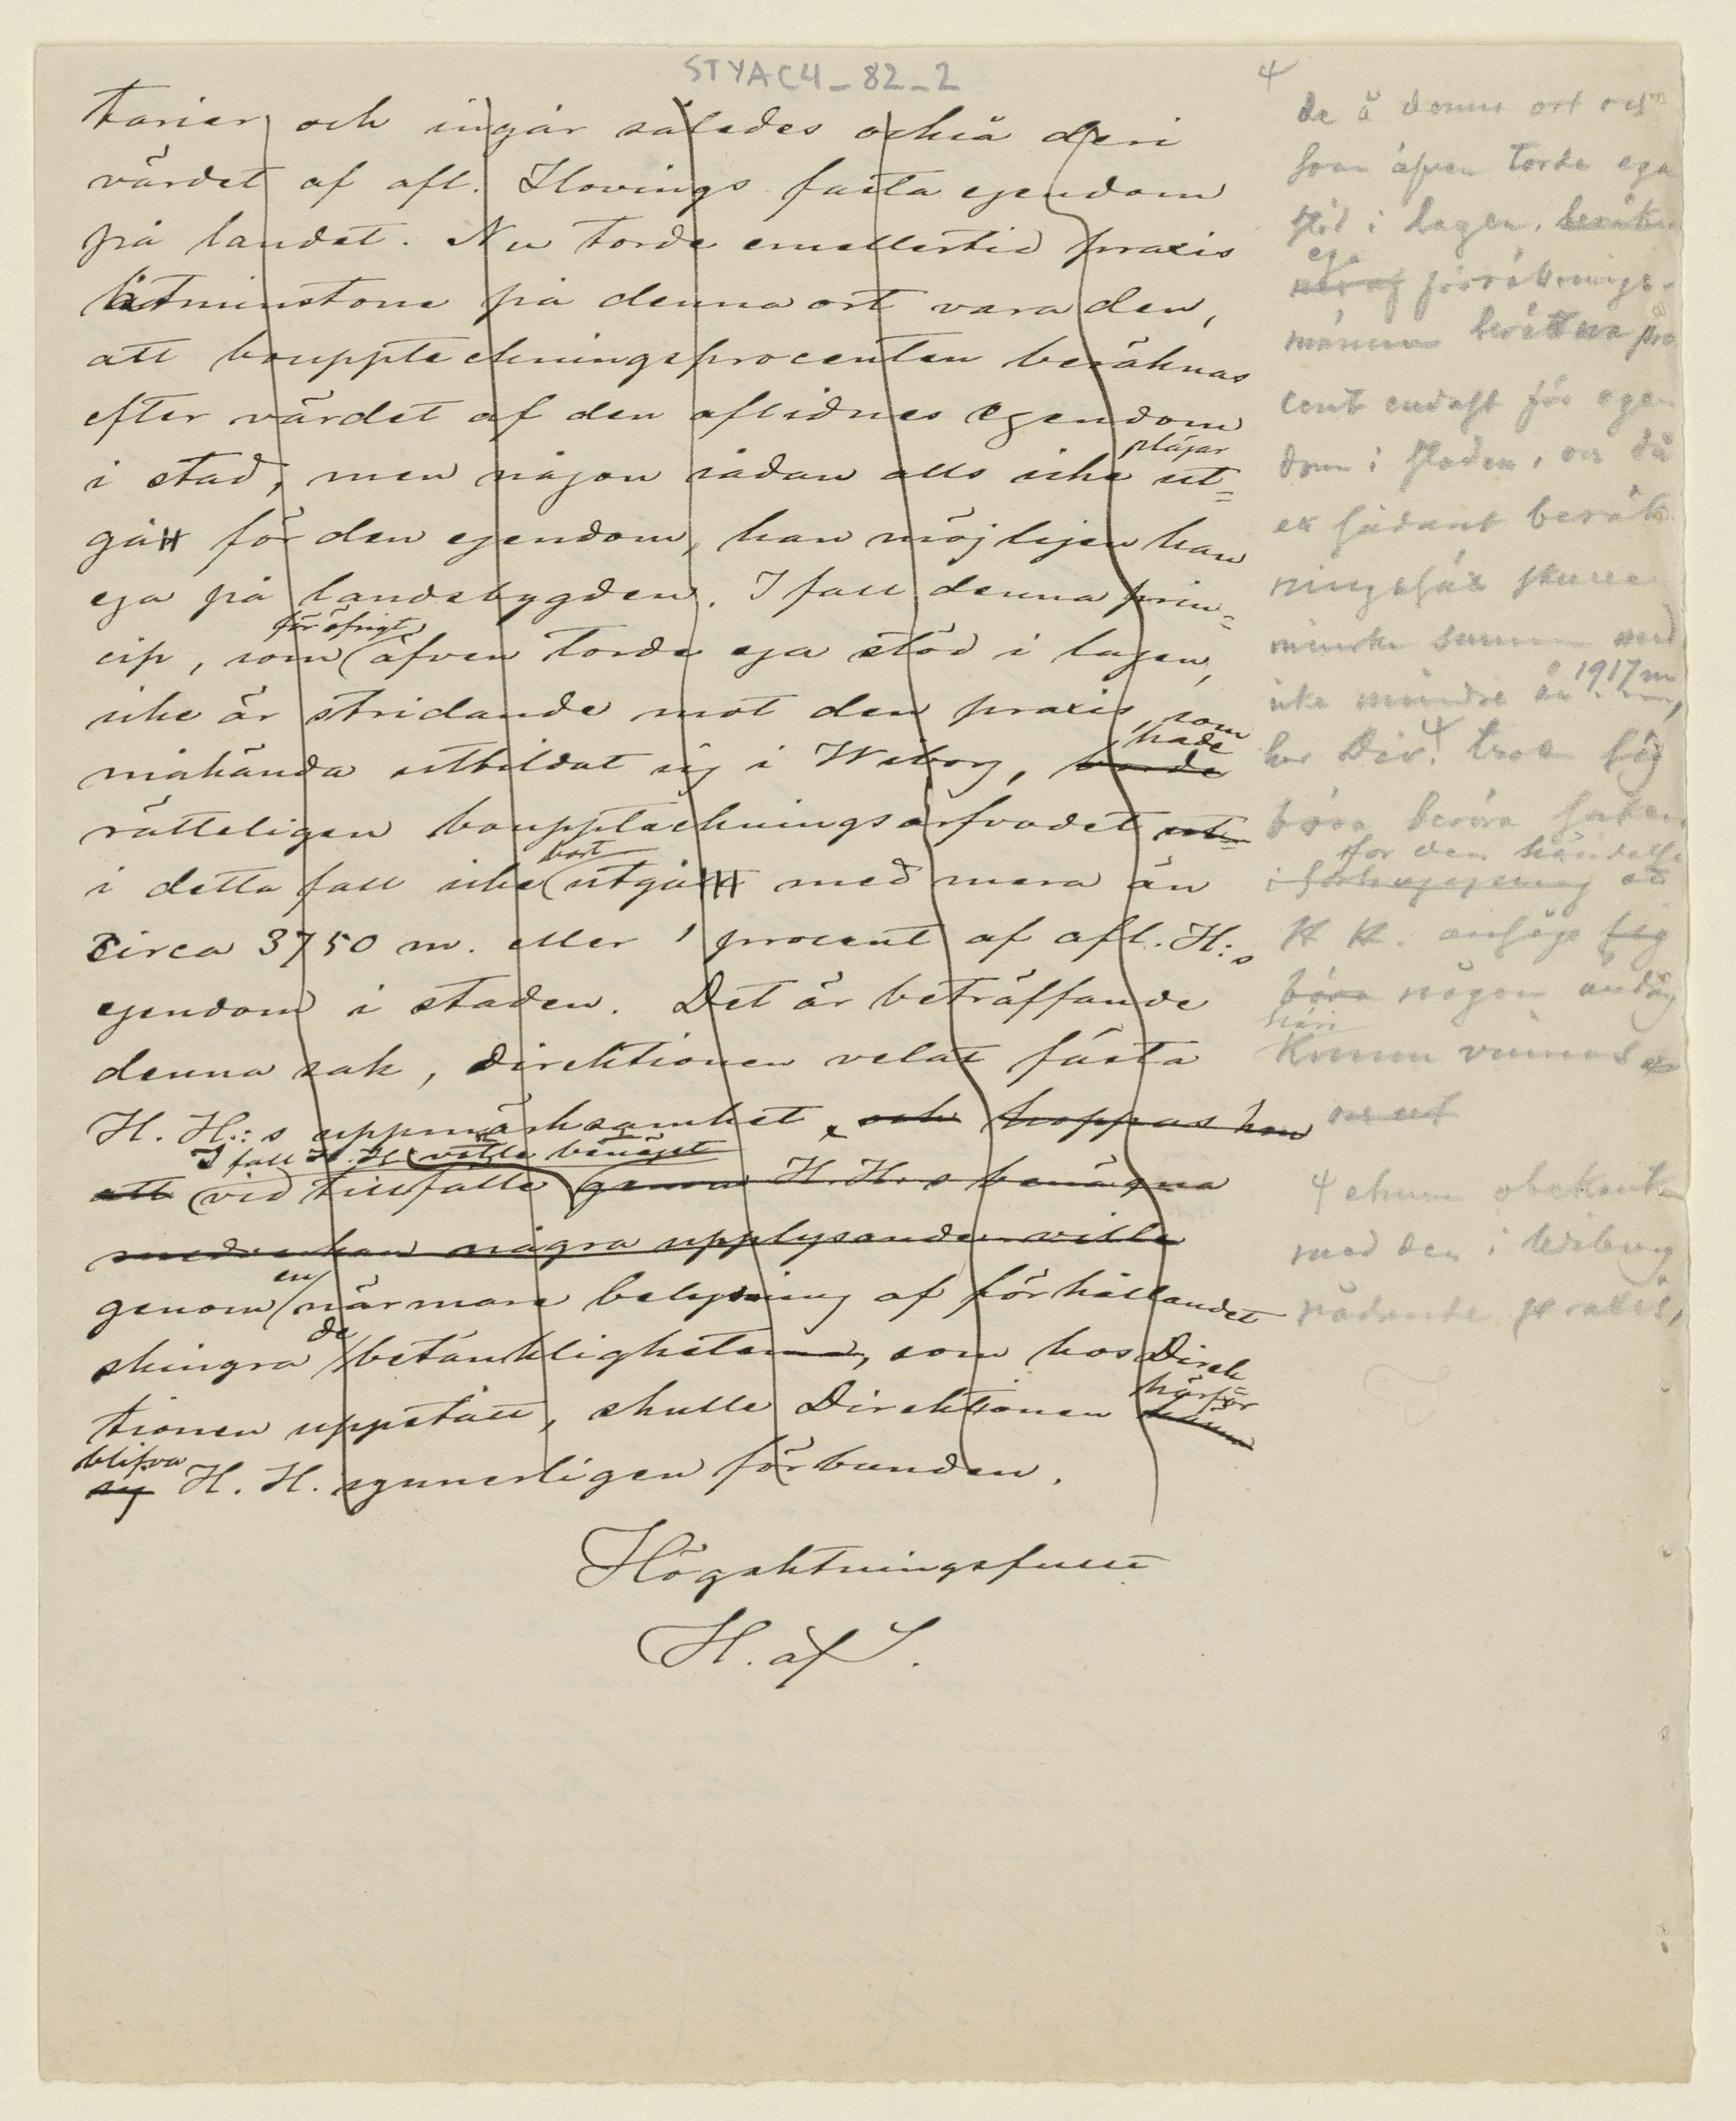 STYAC4_82_2
tarier och ingår således också deri
värdet af afl. Hovings fasta egendom
på landet. Nu torde emellertid praxis
åtminstone på denna ort vara den,
att bouppteckningsprocenten beräknas
efter värdet af den aflidnes egendom
plägar
i stad, men någon sådan alls icke ut=
gå för den egendom, han möjligen kan
ega på landsbygden. I fall denna prin=
för öfrigt
cip, som äfven torde ega stöd i lagen,
icke är stridande mot den praxis, som
hade
måhända utbildat sig i Wiborg, borde
rätteligen bouppteckningsarfvodet ut=
bort
i detta fall icke utgått med mera än
circa 3750 m. eller 1 procent af afl. H:s
egendom i staden. Det är beträffande
denna sak, Direktionen velat fästa
H. H.:s uppmärksamhet, och hoppas hon
I fall H. H. ville benäget
att vid tillfälle genom H. H:s benägna
medverkan några upplysanden ville
en
genom närmare belysning af förhållandet
de
skingra betänkligheterna, som hos Direk
tionen uppstått, skulle Direktionen
härför
blifva
sig H. H. synnerligen förbunden.
Högaktningsfullt
H. af S.
4
de å denna ort och
som äfven torde ega
stöd i lagen,
ega
förrättnings-
männen beräkna pro
cent endast för egen
dom i staden, och då
ett sådant beräk
ningssätt skulle
minska summan med
icke mindre än 1917 m,
har Dir. trott sig
böra beröra saken
för den händelse
att
H H. ansåge sig
böra någon ändring
häri
kunna vinnas
4 ehuru obekant
med den i Wiborg
rådande praxis,